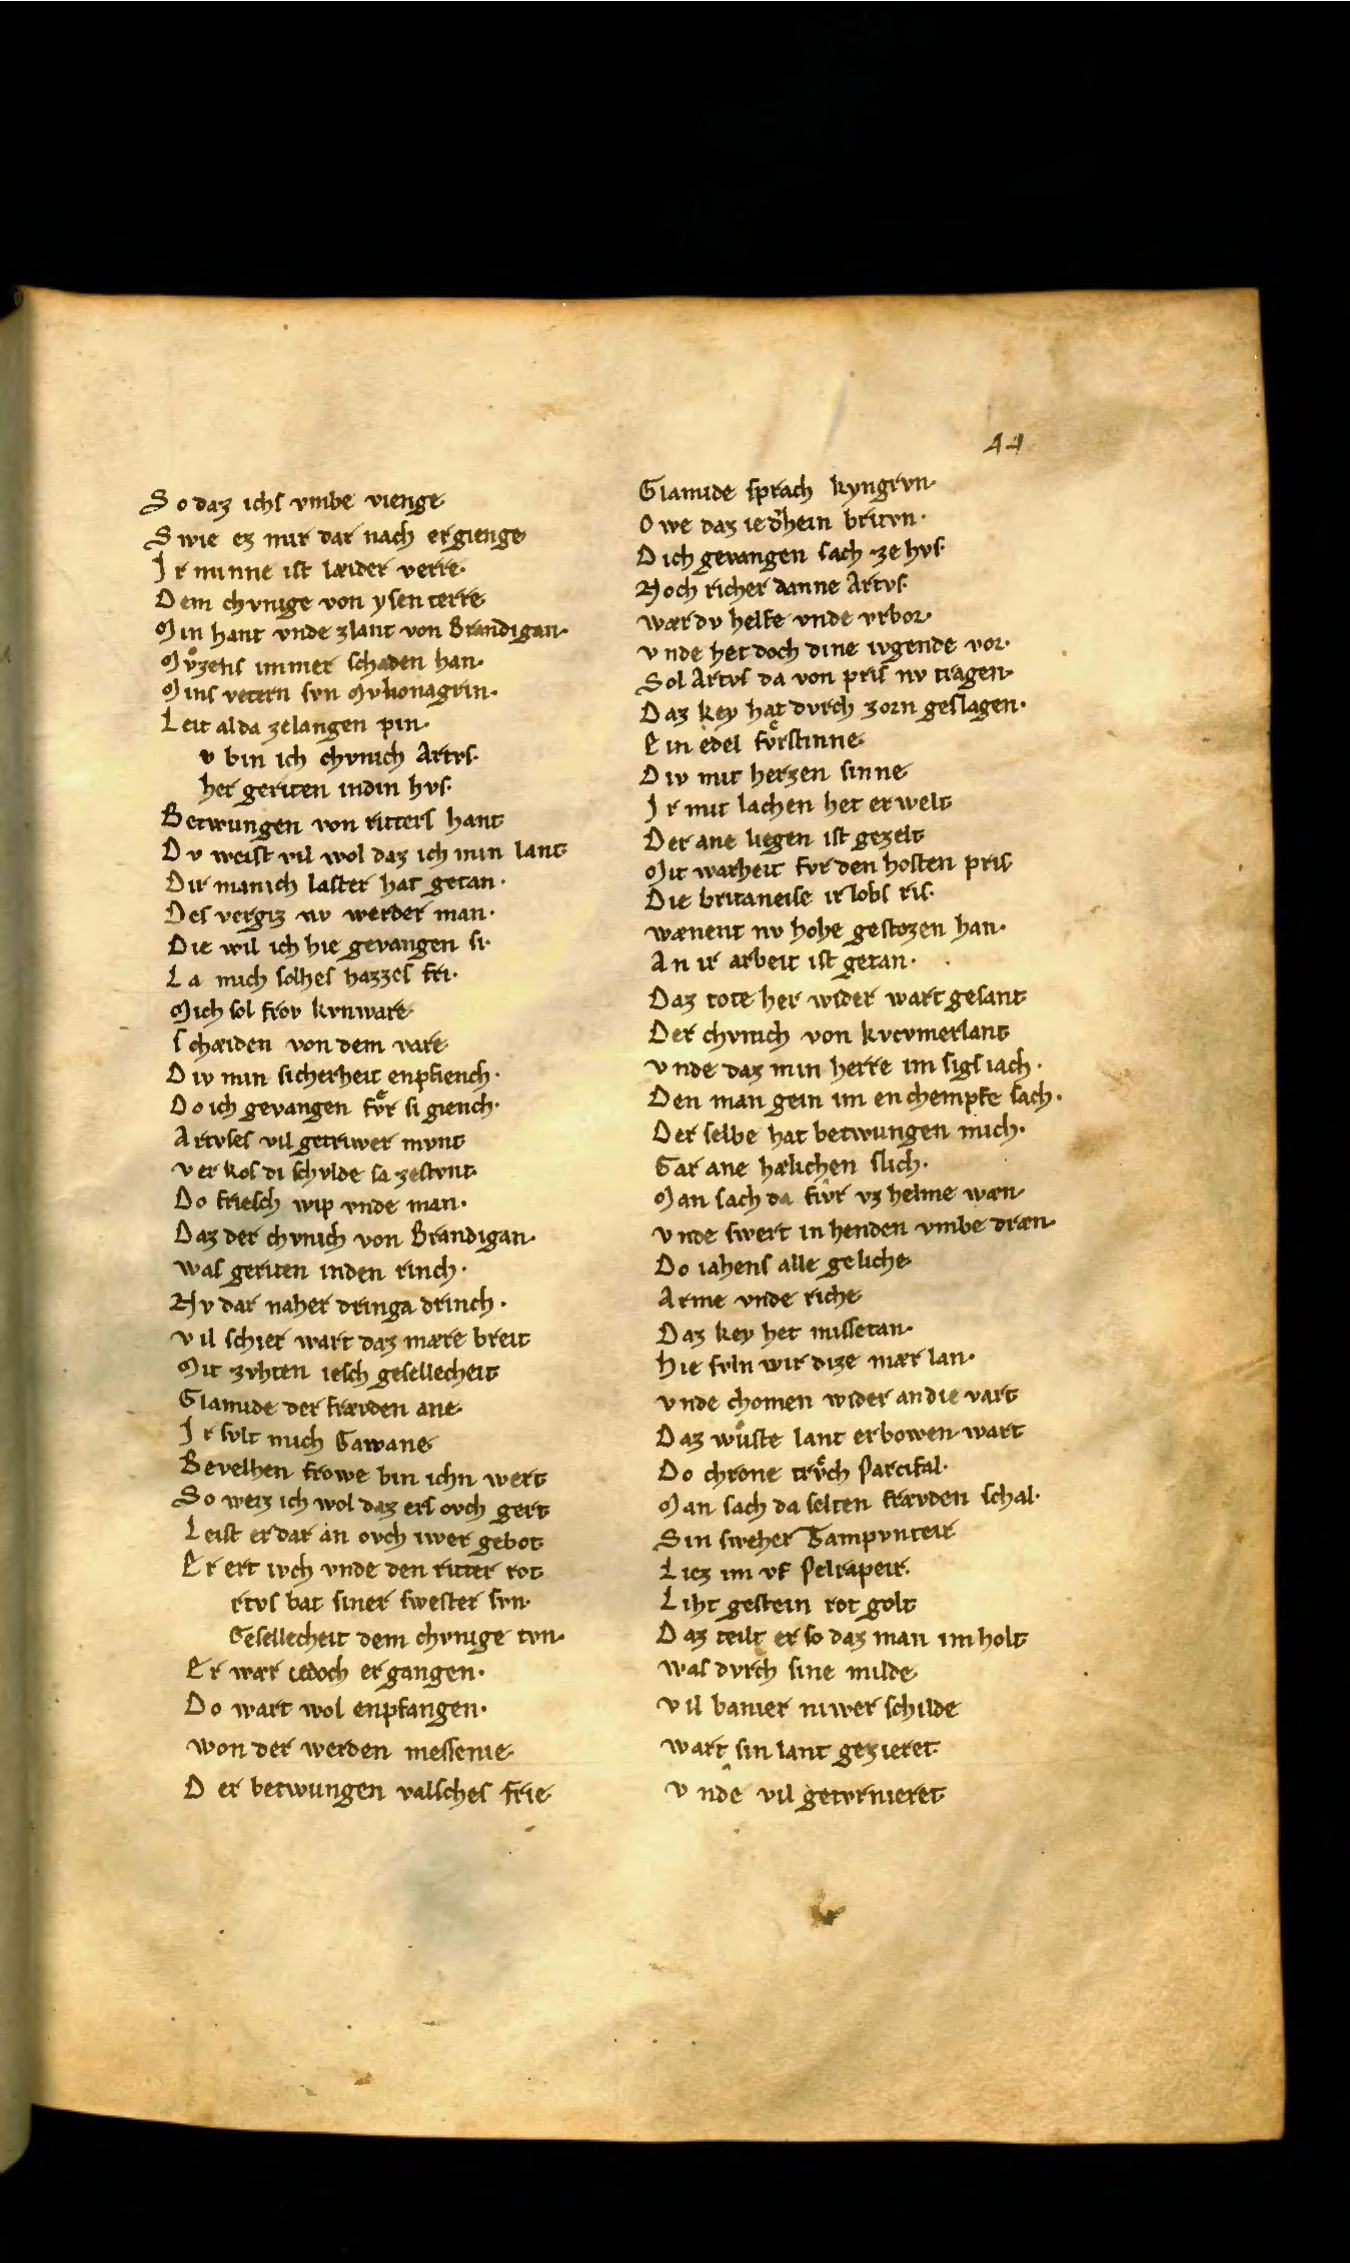 44
So daz ichſ vmbe vienge
Swie ez mir dar nach ergienge
Ir minne iſt læider verre·
Dem chvnige von yſenterre
Min hant vnde zlant von Brandigan·
Mvͦzenſ immer ſchaden han·
Minſ vetern ſvn Mvbonagrin·
Leit alda zelangen pin·
v bin ich chvnich Artvſ·
her geriten indin hvſ·
Betwungen von ritterſ hant
Dv weiſt vil wol daz ich min lant
Dir manich laſter hat getan·
Deſ vergiz nv werder man·
Die wil ich hie gevangen ſi·
La mich ſolheſ hazzeſ fri·
Mich ſol frov kvnware
ſchæiden von dem vare
Div min ſicherheit enpfiench·
Do ich gevangen fvͤr ſi giench·
Artvſeſ vil getriwer mvnt
verkoſ di ſchvlde ſa zeſtvnt
Do frieſch wip vnde man·
Daz der chvnich von Brandigan·
waſ geriten inden rinch·
Nv dar naher dringa drinch·
vil ſchier wart daz mære breit
Mit zvhten ieſch geſellecheit
Clamide der frævden ane·
Ir ſvlt mich Gawane
Bevelhen frowe bin ichn wert
So weiz ich wol daz erſ ovch gert
Leiſt er dar an ovch iwer gebot
Er ert ivch vnde den ritter rot
rtvſ bat ſiner ſweſter ſvn·
Geſellecheit dem chvnige tvn·
Er wær iedoch ergangen·
Do wart wol enpfangen·
von der werden meſſenie
Der betwungen valſcheſ frie
Clamide ſprach kyngrvn·
Owe daz iedhein britvn·
Dich gevangen ſach ze hvſ·
Noch richer danne Artvſ·
wær dv helfe vnde vrbor·
vnde het doch dine ivgende vor·
Sol Artvſ da von priſ nv tragen·
Daz key hat dvrch zorn geſlagen·
Ein edel fvͤrſtinne
Div mit herzen ſinne
Ir mit lachen het erwelt
Der ane liegen iſt gezelt
Mit warheit fvr den hoſten priſ
Die britaneiſe ir lobſ riſ·
wænent nv hohe geſtozen han·
An ir arbeit iſt getan·
Daz tote her wider wart geſant
Der chvnich von kvcvmerlant
vnde daz min herre im ſigſ iach·
Den man gein im enchempfe ſach·
Der ſelbe hat betwungen mich·
Gar ane hælichen ſlich·
Man ſach da fivr vz helme wæn
vnde ſwert in henden vmbe dræn·
Do iahenſ alle geliche
Arme vnde riche
Daz key het miſſetan·
Hie ſvln wir dize mær lan·
vnde chomen wider an die vart
Daz wuͦſte lant erbowen wart
Do chrone trvͤch Parcifal·
Man ſach da ſelten frævden ſchal·
Sin ſweher Tampvnteir
Liez im vf Pelrapeir·
Liht geſtein rot golt
Daz teilt er ſo daz man im holt
waſ dvrch ſine milde
vil banier niwer ſchilde
wart ſin lant gezieret
vnde vil getvrnieret